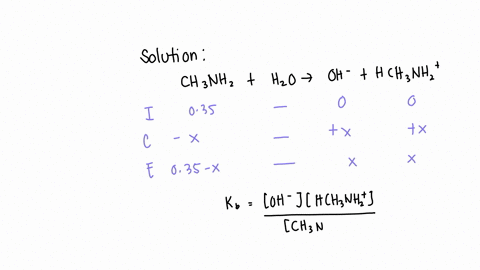 Solution:
CH₃NH₂ + H₂O → OH⁻ + HCH₃NH₂⁺
I 0.35 — 0 0
C - x — +x +x
E 0.35-x — x x
K_b = [OH⁻][HCH₃NH₂⁺]
[CH₃N